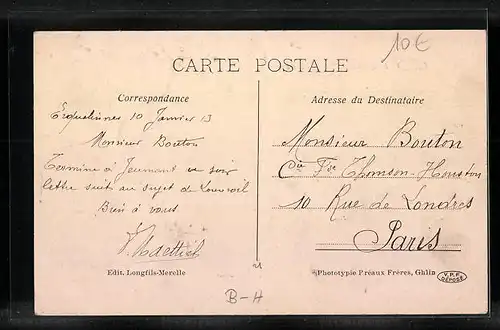 10€
CARTE POSTALE
Correspondance
Adresse du Destinataire
Erquelinnes 10 Janvier 13
Monsieur Bouton
Termine à Jeumont ce soir
lettre suit au sujet de
Bien à vous
Monsieur Bouton
Cie Fse Thomson-Houston
10 Rue de Londres
Paris
Edit. Longfils-Merelle
Phototypie Préaux Frères, Ghlin
V.P.F.
DÉPOSÉ
B-H